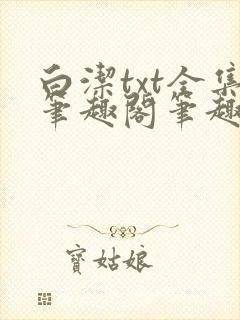 白潔txt全集
筆趣閣筆趣
寶姑娘